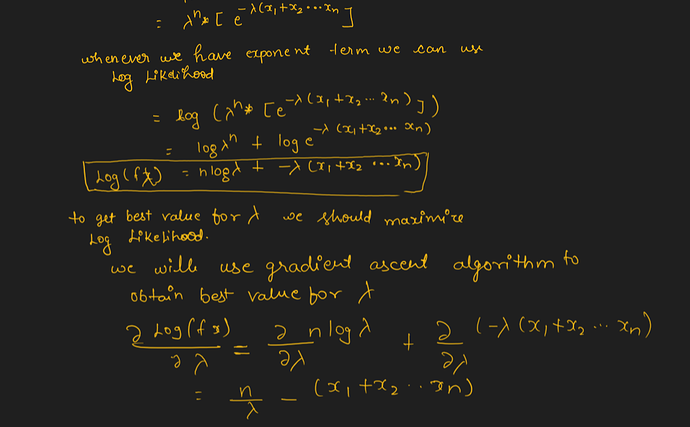 = λⁿ * [ e^{-λ(x₁+x₂···xₙ}]
whenever we have exponent term we can use
Log Likelihood
= log (λⁿ* [e^{-λ(x₁+x₂··· xₙ)}])
= logλⁿ + log e^{-λ(x₁+x₂··· xₙ)}
Log(fx) = nlogλ + -λ(x₁+x₂ ···xₙ)
to get best value for λ we should maximize
Log Likelihood.
we will use gradient ascent algorithm to
obtain best value for λ
∂ Log(fx)/∂λ = ∂/∂λ nlogλ + ∂/∂λ (-λ(x₁+x₂···xₙ)
= n/λ - (x₁+x₂··xₙ)